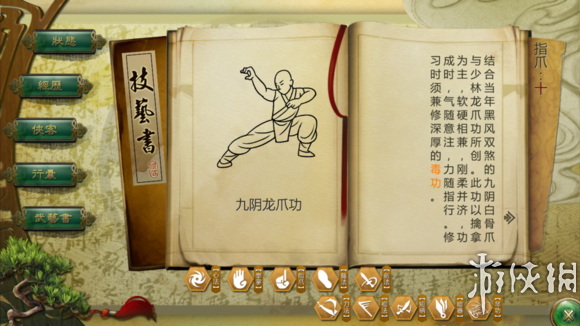 狀態
經歷
俠客
行囊
技藝書
技藝書
九阴龙爪功
指爪：十
结合当年黑风双煞的九阴白骨爪
与少林龙爪功所创。此功以擒拿
为主，软硬相兼，刚柔并济，功
成时，气随意注，力随指行。修
习时须兼修深厚的毒功。
游侠网